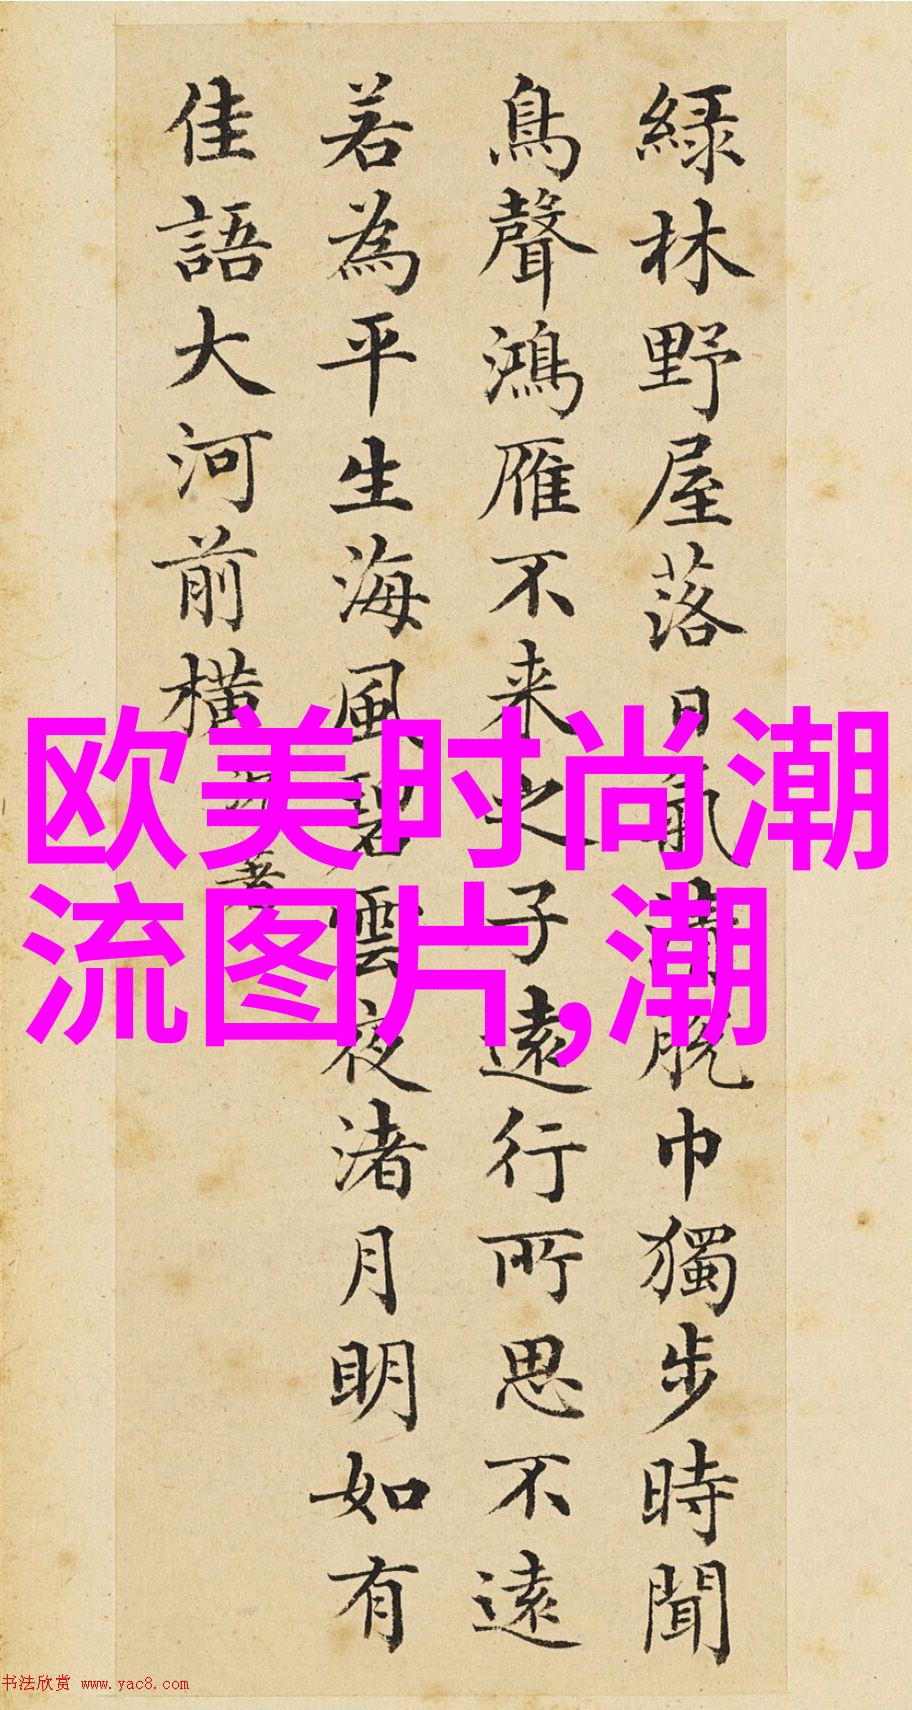 緑林野屋落日氣清脫巾獨步時聞
鳥聲鴻雁不来之子遠行所思不遠
若為平生海風碧雲夜渚月明如有
佳語大河前橫
欧美时尚潮
流图片,潮
书法欣赏 www.yac8.com